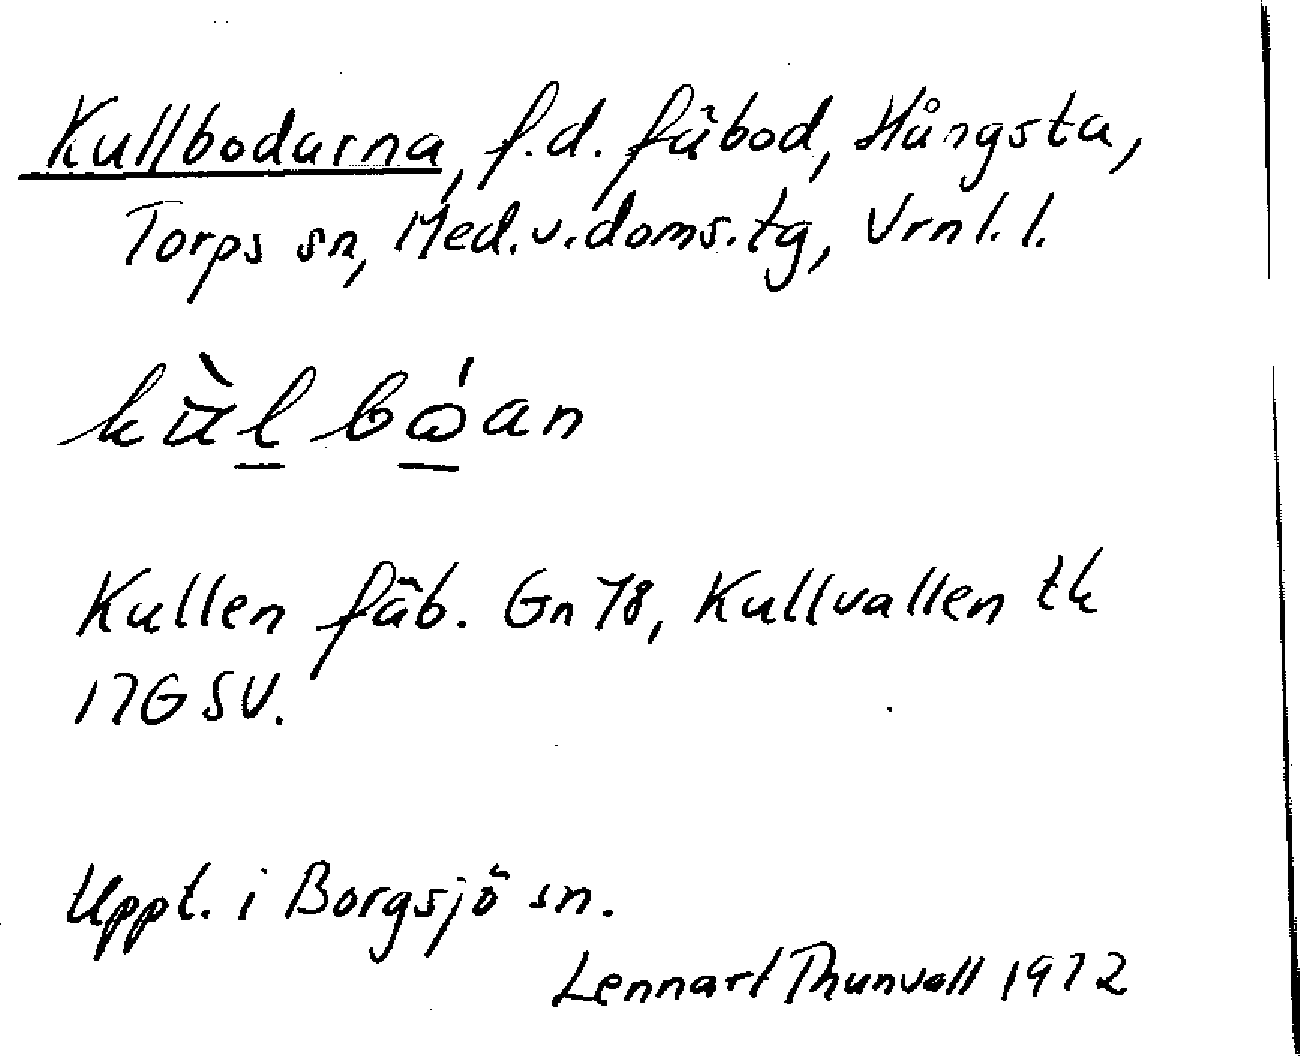 Kullbodarna, f.d. fäbod, Hångsta,
Torps sn, Med.v.doms.tg, Vrnl.l.
Kullen fäb. Gn 78, Kullvallen tk
17G SV.
Uppt. i Borgsjö sn.
Lennart Thunvall 1972